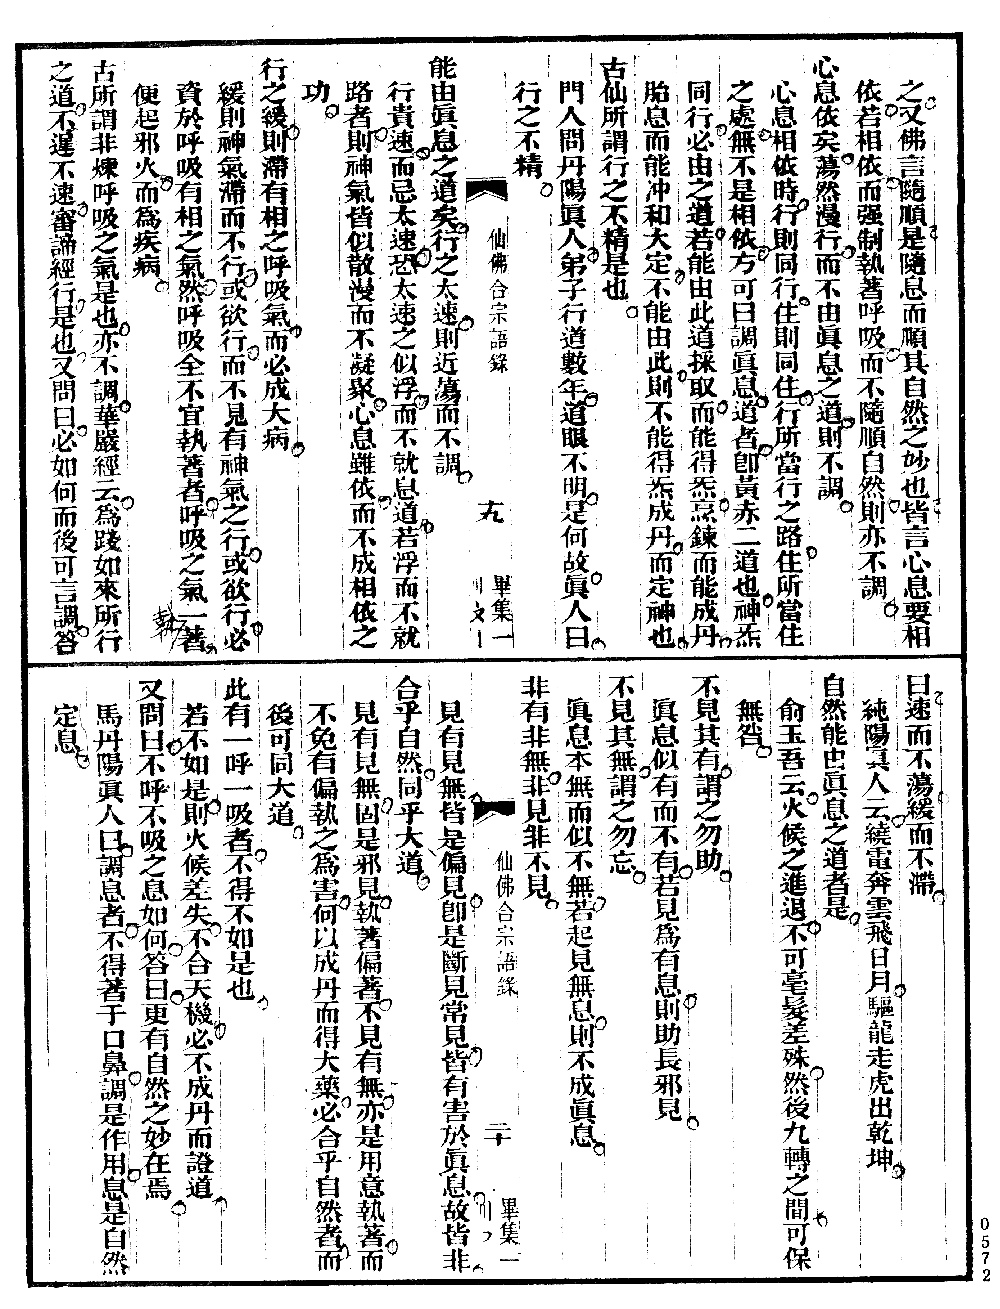 之又佛言隨順是隨息而順其自然之妙也皆言心息要相
依若相依而强制執著呼吸而不隨順自然則亦不調
心息依矣蕩然漫行而不由眞息之道則不調
心息相依時行則同行住則同住行所當行之路住所當住
之處無不是相依方可曰調眞息道者卽黃赤二道也神炁
同行必由之道若能由此道採取而能得炁烹鍊而能成丹
胎息而能冲和大定不能由此則不能得炁成丹而定神也
古仙所謂行之不精是也
門人問丹陽眞人弟子行道數年道眼不明是何故眞人曰
行之不精
仙佛合宗語錄
九
畢集一
能由眞息之道矣行之太速則近蕩而不調
行貴速而忌太速恐太速之似浮而不就息道若浮而不就
路者則神氣皆似散漫而不凝聚心息雖依而不成相依之
功
行之緩則滯有相之呼吸氣而必成大病
緩則神氣滯而不行或欲行而不見有神氣之行或欲行必
資於呼吸有相之氣然呼吸全不宜執著者呼吸之氣一著
便起邪火而爲疾病
古所謂非煉呼吸之氣是也亦不調華嚴經云爲踐如來所行
之道不遲不速審諦經行是也又問曰必如何而後可言調答
曰速而不蕩緩而不滯
純陽眞人云繞電奔雲飛日月驅龍走虎出乾坤
自然能也眞息之道者是
俞玉吾云火候之進退不可毫髮差殊然後九轉之間可保
無咎
不見其有謂之勿助
眞息似有而不有若見爲有息則助長邪見
不見其無謂之勿忘
眞息本無而似不無若起見無息則不成眞息
非有非無非見非不見
仙佛合宗語錄
二十
畢集一
見有見無皆是偏見卽是斷見常見皆有害於眞息故皆非
合乎自然同乎大道
見有見無固是邪見執著偏著不見有無亦是用意執著而
不免有偏執之爲害何以成丹而得大藥必合乎自然者而
後可同大道
此有一呼一吸者不得不如是也
若不如是則火候差失不合天機必不成丹而證道
又問曰不呼不吸之息如何答曰更有自然之妙在焉
馬丹陽眞人曰調息者不得著于口鼻調是作用息是自然
定息
0572